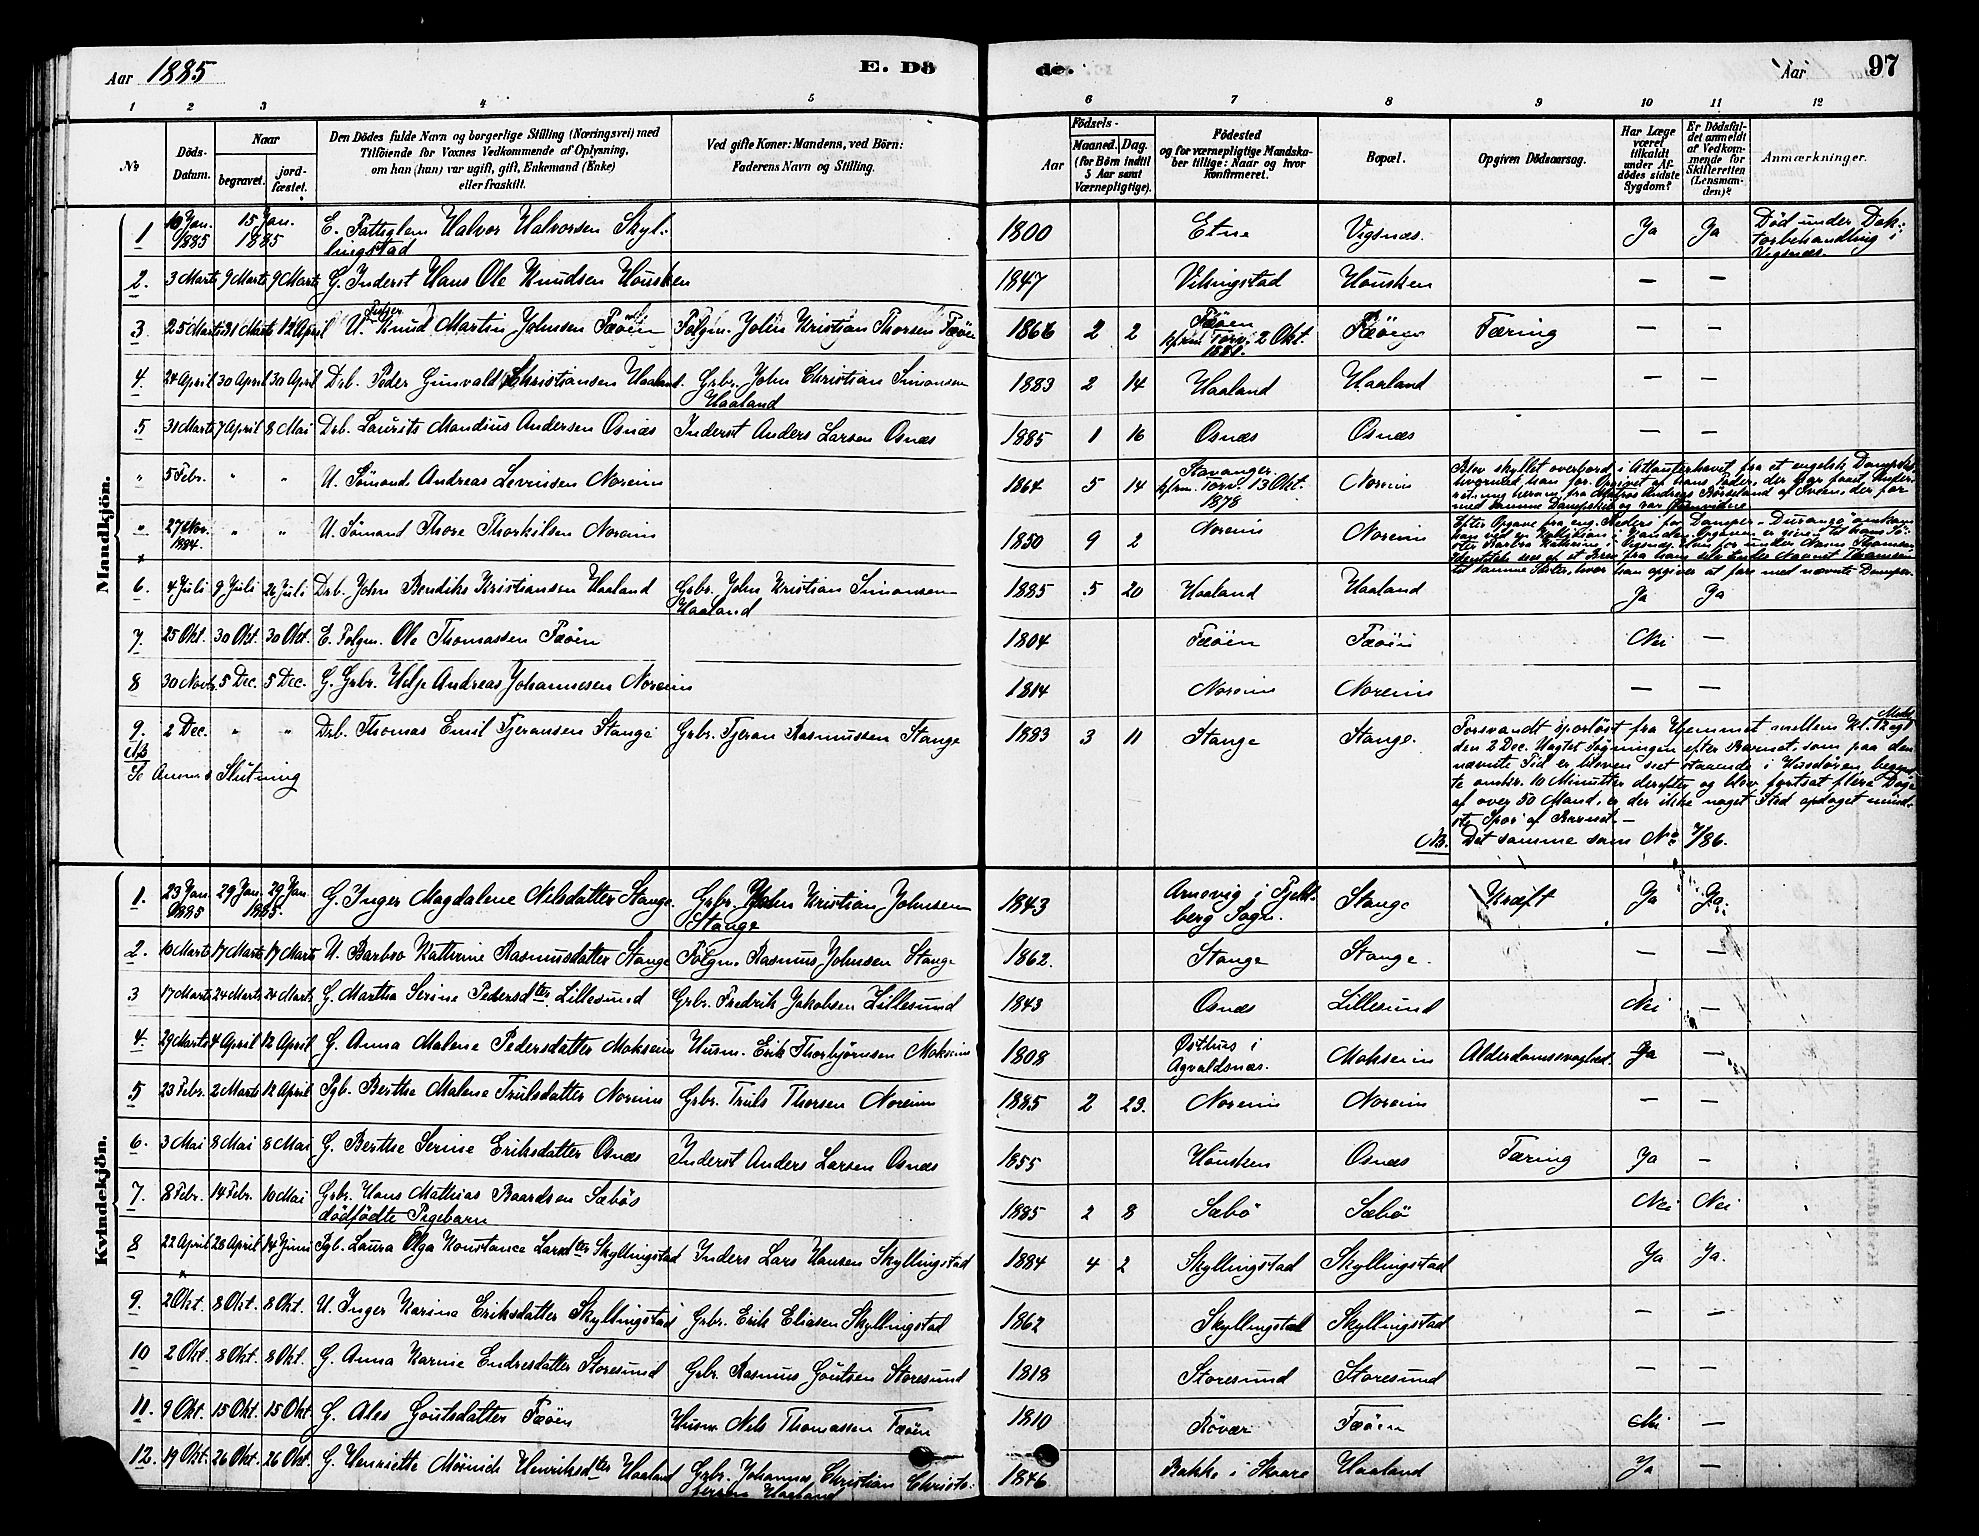 Aar 1885 E. Dö de. Aar 97
1 2 3 4 5 6 7 8 9 10 11 12
No
Döds-Datum.
Naar
begravet.
jord-fæstet.
Den Dödes fulde Navn og borgerlige Stilling (Næringsvei) med
Tilföiende for Voxnes Vedkommende af Oplysning,
om han (hun) var ugift, gift, Enkemand (Enke)
eller fraskilt.
Ved gifte Koner: Mandens, ved Börn:
Faderens Navn og Stilling.
Födsels-
Aar
Maaned. Dag.
(for Börn indtil
5 Aar samt
Værnepligtige).
Födested
og for værnepligtige Mandska-
ber tillige: Naar og hvor
Konfirmeret.
Bopæl.
Opgiven Dödsaarsag.
Har Læge
været
tilkaldt
under Af-
dödes sidste
Sygdom?
Er Dödsfal-
det anmeldt
af Vedkom-
mende for
Skifteretten
(Lensman-
den)?
Anmærkninger.
Mandkjön.
1 10 Jan. 1885 15 Jan. 1885 E. Fattiglem Halvor Halvorsen Skyl-
lingstad 1800 Etne Vigsnæs. Ja Ja Död under Dok-
torbehandling i
Vigsnæs.
2. 3 Marts 9 Marts 9 Marts G. Inderst Hans Ole Knudsen Housken 1847 Vikingstad Housken — —
3 25 Marts 31 Marts 12 April U. Fisker Knud Martin Johnsen Fæöen Folgm. John Kristian Thorsen Fæöen 1866 2 2 Fæöen
kfrm. Torv. 2 Okt.
1881. Fæöen Tæring — —
4. 24 April 30 April 30 April Drb. Peder Gunvald Christiansen Haaland. Grbr. John Christian Simonsen
Haaland 1883 2 14 Haaland Haaland — —
5 31 Marts 7 April 8 Mai Drb. Laurits Mandius Andersen Osnæs Inderst Anders Larsen Osnæs 1885 1 16 Osnæs Osnæs — —
" 5 Febr. " " U. Sömand Andreas Levrissen Noreim 1864 5 14 Stavanger.
kfrm. Torv. 13 Okt.
1878 Noreim Blev skyllet overbord i Atlanterhavet fra et engelsk Dampsk.
hvormed han for. Opgivet af hans Fader, der har faaet Under-
retning herom fra Matros Andreas
med samme Dampskib og var Öienvidne
" 27 Nov. 1884. " " U. Sömand Thore Thorkilsen Noreim 1850 9 2 Noreim Noreim Efter Opgave fra eng. Rederi for Damper "Durango" omkom
han ved en Kollission i Kanalen. Opgaven er given til hans Sö-
ster Barbra Kathrine i Vigsnæs. Han for under Navn Thomsen
til samme Söster, hvor han opgiver at fare med nævnte Damper.
6. 4 Juli 9 Juli 26 Juli Drb. John Bendiks Kristiansen Haaland Grbr. John Kristian Simonsen
Haaland 1885 5 20 Haaland Haaland Ja Ja
7. 25 Okt. 30 Okt. 30 Okt. E. Folgm. Ole Thomassen Fæöen 1804 Fæöen Fæöen Nei —
8 30 Novb. 5 Dec. 5 Dec. G. Grbr. Helje Andreas Johannesen Noreim 1814 Noreim Noreim — —
9. 2 Dec. " " Drb. Thomas Emil Tjeransen Stange Grbr. Tjeran Rasmussen Stange 1883 3 11 Stange Stange. Forsvandt sporlöst fra Hjemmet mellem Kl. 12 og 1
den 2 Dec. Uagtet Sögningen efter Barnet, som paa den
nævnte Tid er bleven seet staaende i Husdören, begynd-
te omtr. 10 Minutter derefter og blev fortsat flere Dage
af over 50 Mand, er der ikke noget Sted opdaget mind-
ste Spor af Barnet. —
NB. Det samme som No 7/86.
NB
Se Anm. Slutning
Kvindekjön.
1. 23 Jan. 1885 29 Jan. 29 Jan. 1885. G. Inger Magdalene Nilsdatter Stange. Grbr. John Kristian Johnsen
Stange 1843 Arnevig i Fjeld-
berg Sogn. Stange Kræft Ja Ja.
2. 10 Marts 17 Marts 17 Marts U. Barbro Kathrine Rasmusdatter Stange Folgm. Rasmus Johnsen Stange 1862. Stange Stange. — —
3 17 Marts 24 Marts 24 Marts G. Martha Serine Pedersdter Lillesund Grbr. Fredrik Jakobsen Lillesund 1843 Osnæs Lillesund Nei —
4. 29 Marts 4 April 12 April G. Anna Malene Pedersdatter Mokseim Husm. Erik Thorbjörnsen Moksheim 1808 Östhus i
Agvaldsnæs. Moksheim Alderdomssvaghed. Ja —
5 23 Febr. 2 Marts 12 April Pgb. Berthe Malene Trulsdatter Noreim Grbr. Truls Thorsen Noreim 1885 2 23. Noreim Noreim — —
6. 3 Mai 8 Mai 8 Mai G. Berthe Serine Eriksdatter Osnæs Inderst Anders Larsen Osnæs 1855 Housken Osnæs Tæring Ja —
7. 8 Febr. 14 Febr. 10 Mai Grbr. Hans Mathias Baardsen Sæbös
dödfödte Pigebarn 1885 2 8 Sæbö Sæbö Nei Nei
8 22 April 28 April 14 Juni Pgb. Laura Olga Konstance Larsdter Skyllingstad Inders Lars Hansen Skyllingstad 1884 4 2 Skyllingstad Skyllingstad Ja Ja.
9. 2 Okt. 8 Okt. 8 Okt. U. Inger Karine Eriksdatter Skyllingstad Grbr. Erik Eliasen Skyllingstad 1862 Skyllingstad Skyllingstad — —
10 2 Okt. 8 Okt. 8 Okt. G. Anna Karine Endresdatter Storesund Grbr. Rasmus Goutsen Storesund 1818 Storesund Storesund — —
11. 9 Okt. 15 Okt. 15 Okt. G. Ales Goutsdatter Fæöen Husm. Nels Thomassen Fæöen 1810 Rövær Fæöen Nei —
12. 19 Okt. 26 Okt. 26 Okt. G. Henriette Mönich Henriksdter Haaland Grbr. Johannes Christian Christo-
fersen Haaland 1846 Bakke i Skaare Haaland Ja —